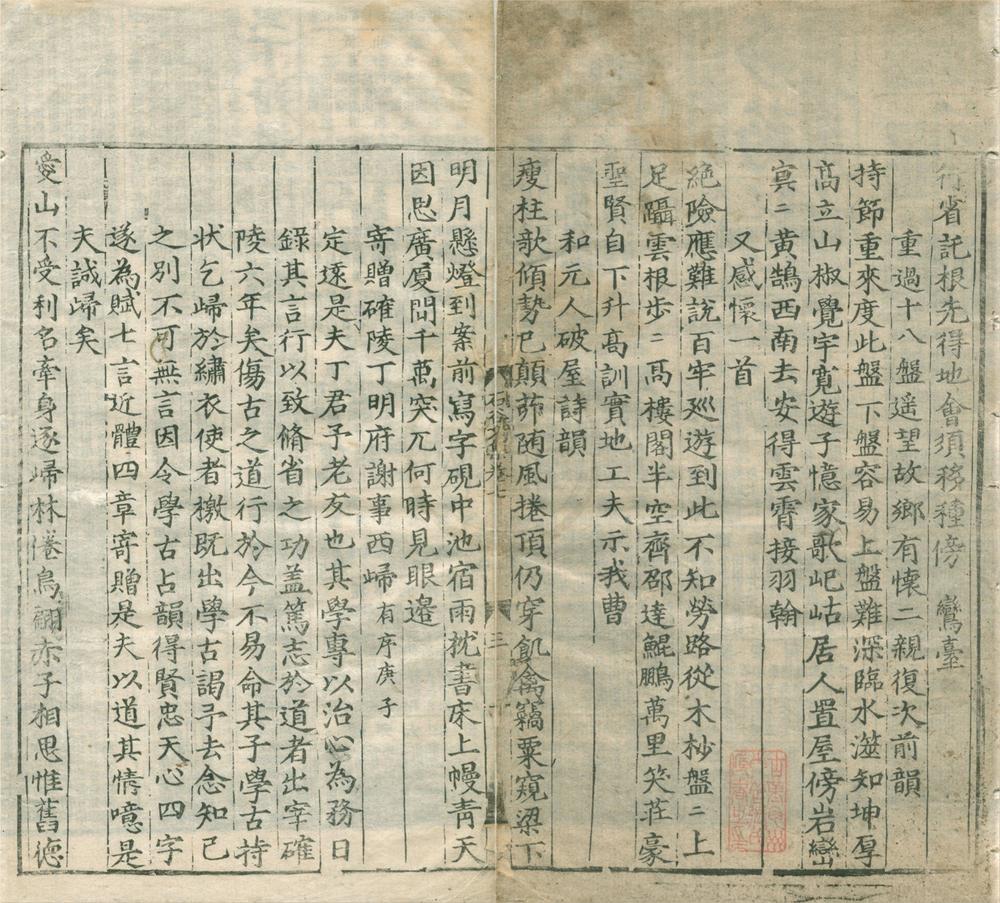 行省託根先得地會須移種傍　鸞臺
重過十八盤遥望故鄉有懷二親復次前韻
持節重來度此盤下盤容易上盤難深臨水澨知坤厚
高立山椒覺宇寬遊子憶家歌屺岵居人置屋傍岩巒
寘二黃鵠西南去安得雲霄接羽翰
又感懷一首
絶險應難說百牢廵遊到此不知勞路從木杪盤二上
足躡雲根步二高樓閣半空齊邵達鯤鵬萬里笑莊豪
聖賢自下升高訓實地工夫示我曹
和元人破屋詩韻
瘦柱歌傾勢已顛茆随風捲頂仍穿飢禽竊粟窺梁下
明月懸燈到案前寫字硯中池宿雨枕書床上幔靑天
因思廣厦問千萬突兀何時見眼邉
寄贈確陵丁明府謝事西歸有序庚子
定逺是夫丁君予老友也其學專以治心為務日
錄其言行以致脩省之功盖篤志於道者出宰確
陵六年矣傷古之道行於今不易命其子學古持
狀乞歸於繡衣使者檄既出學古謁予去念知己
之别不可無言因令學古占韻得賢忠天心四字
遂為賦七言近體四章寄贈是夫以道其情噫是
夫誠歸矣
愛山不受利名牽身逐歸林倦鳥翩赤子相思惟舊德
三